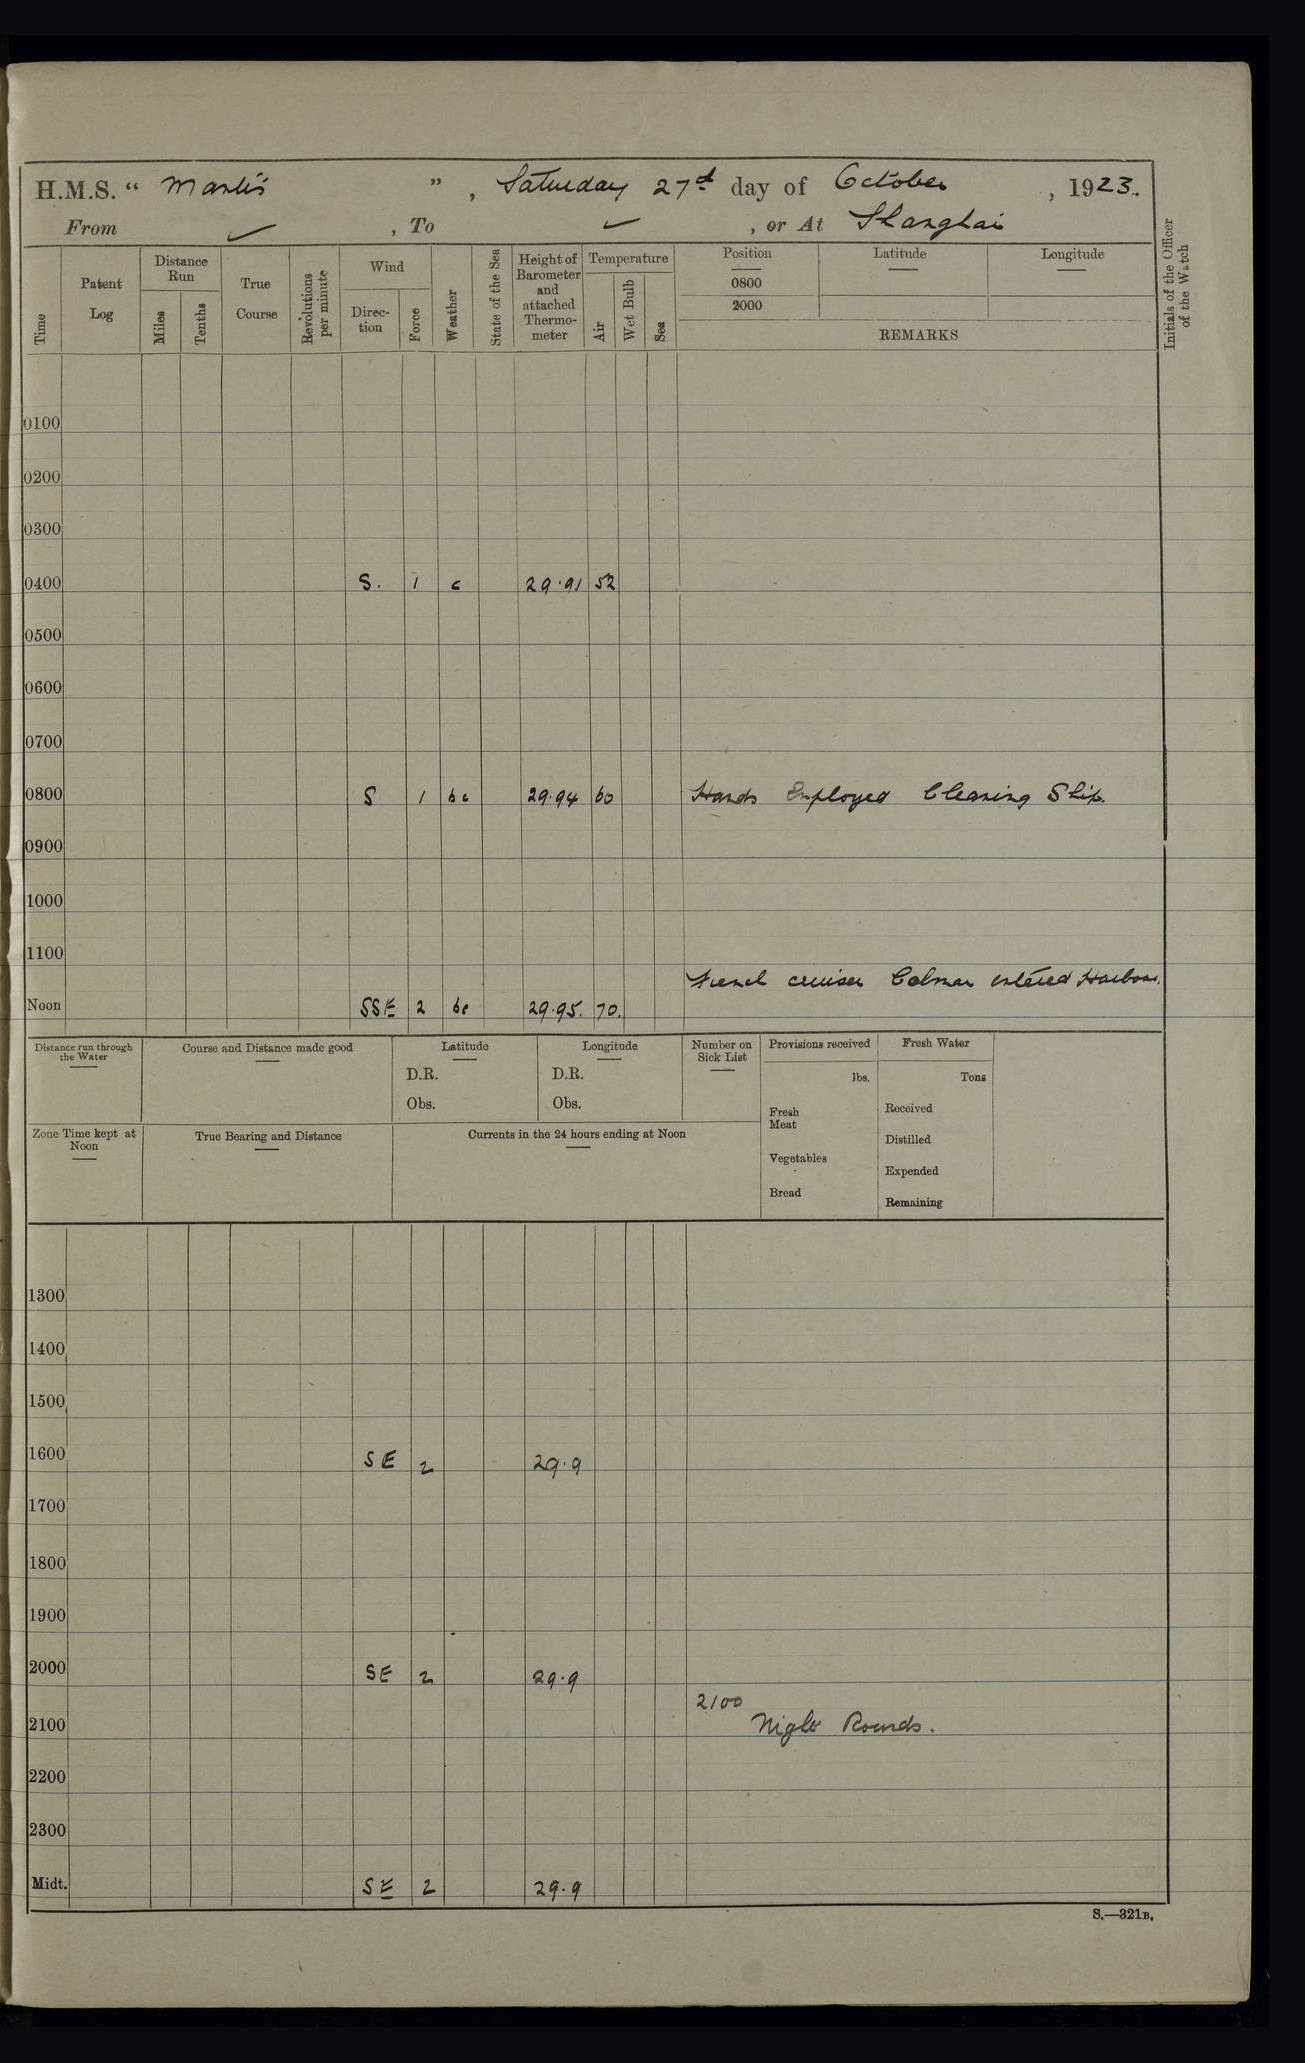 H.M.S. “ Mantis ” , Saturday 27th day of October , 1923.
From ✓ , To ✓ , or At Shanghai
Time
Patent Log
Distance Run
Miles
Tenths
True Course
Revolutions per minute
Wind
Direc-tion
Force
Weather
State of the Sea
Height of Barometer and attached Thermo-meter
Temperature
Air
Wet Bulb
Sea
Position
0800
2000
Latitude
Longitude
REMARKS
Initials of the Officer of the Watch
0100
0200
0300
0400 S. 1 c 29.91 52
0500
0600
0700
0800 S 1 bc 29.94 60 Hands Employed Cleaning Ship.
0900
1000
1100
French cruiser Colmar entered Harbour.
Noon SSE 2 bc 29.95. 70.
Distance run through the Water
Course and Distance made good
Latitude
D.R.
Obs.
Longitude
D.R.
Obs.
Number on Sick List
Zone Time kept at Noon
True Bearing and Distance
Currents in the 24 hours ending at Noon
Provisions received
lbs.
Fresh Meat
Vegetables
Bread
Fresh Water
Tons
Received
Distilled
Expended
Remaining
1300
1400
1500
1600 SE 2 29.9
1700
1800
1900
2000 SE 2 29.9
2100
2100 Night Rounds.
2200
2300
Midt. SE 2 29.9
S.—321B.